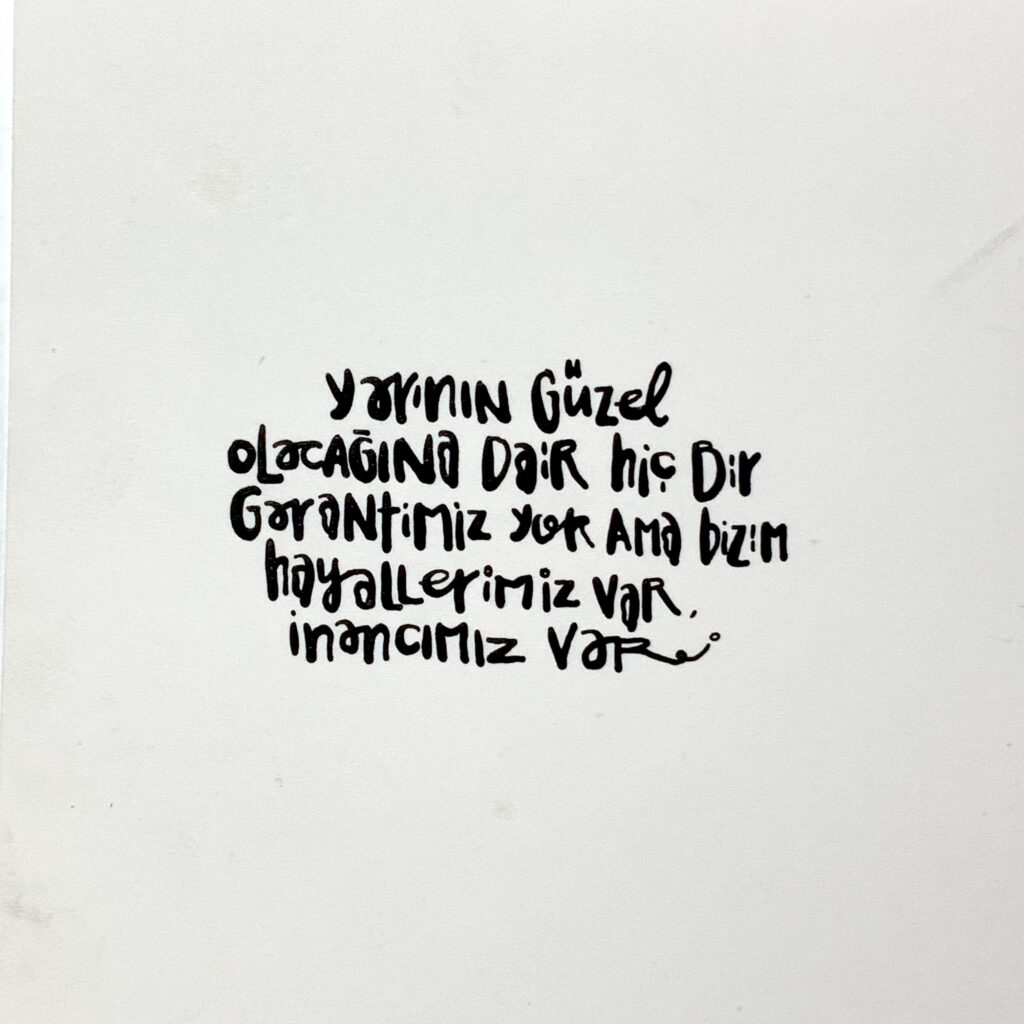 Yarının Güzel
oLacAĞINa DaiR hiç Bir
GaraNtiMiz yok AMa bizim
hayaLLerimiz vaR,
inancıMız VaR